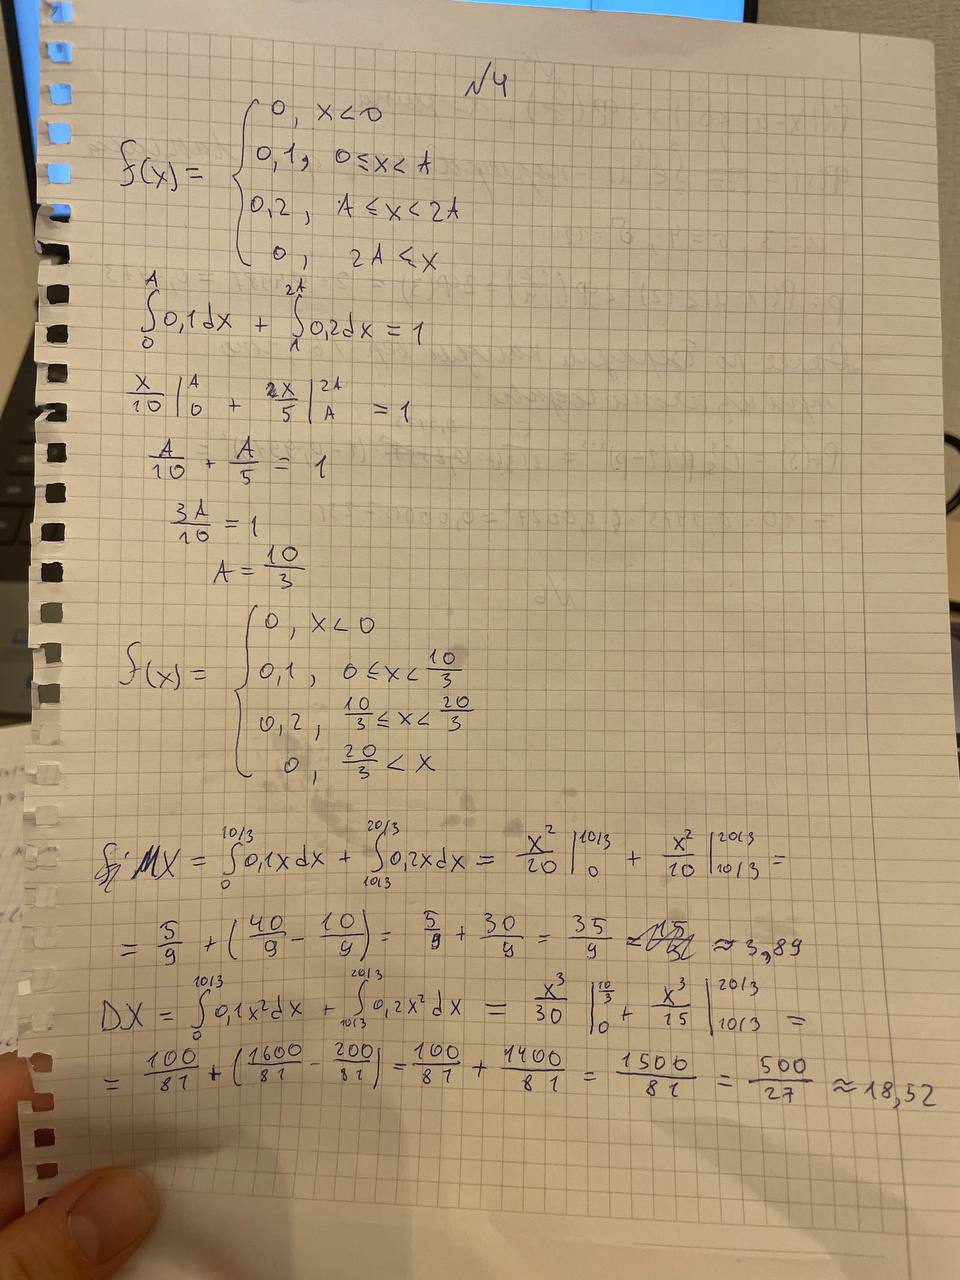 №4
f(x) = { 0, x<0
0,1, 0≤x<A
0,2, A≤x<2A
0, 2A≤x
∫₀ᴬ 0,1dx + ∫_A^{2A} 0,2dx = 1
x/10 |₀ᴬ + x/5 |_A^{2A} = 1
A/10 + A/5 = 1
3A/10 = 1
A = 10/3
f(x) = { 0, x<0
0,1, 0≤x<10/3
0,2, 10/3≤x<20/3
0, 20/3<x
MX = ∫_0^{10/3} 0,1xdx + ∫_{10/3}^{20/3} 0,2xdx = x²/20 |_0^{10/3} + x²/10 |_{10/3}^{20/3} =
= 5/9 + (40/9 - 10/9) = 5/9 + 30/9 = 35/9 ≈ 3,89
DX = ∫_0^{10/3} 0,1x²dx + ∫_{10/3}^{20/3} 0,2x²dx = x³/30 |_0^{10/3} + x³/15 |_{10/3}^{20/3} =
= 100/81 + (1600/81 - 200/81) = 100/81 + 1400/81 = 1500/81 = 500/27 ≈ 18,52